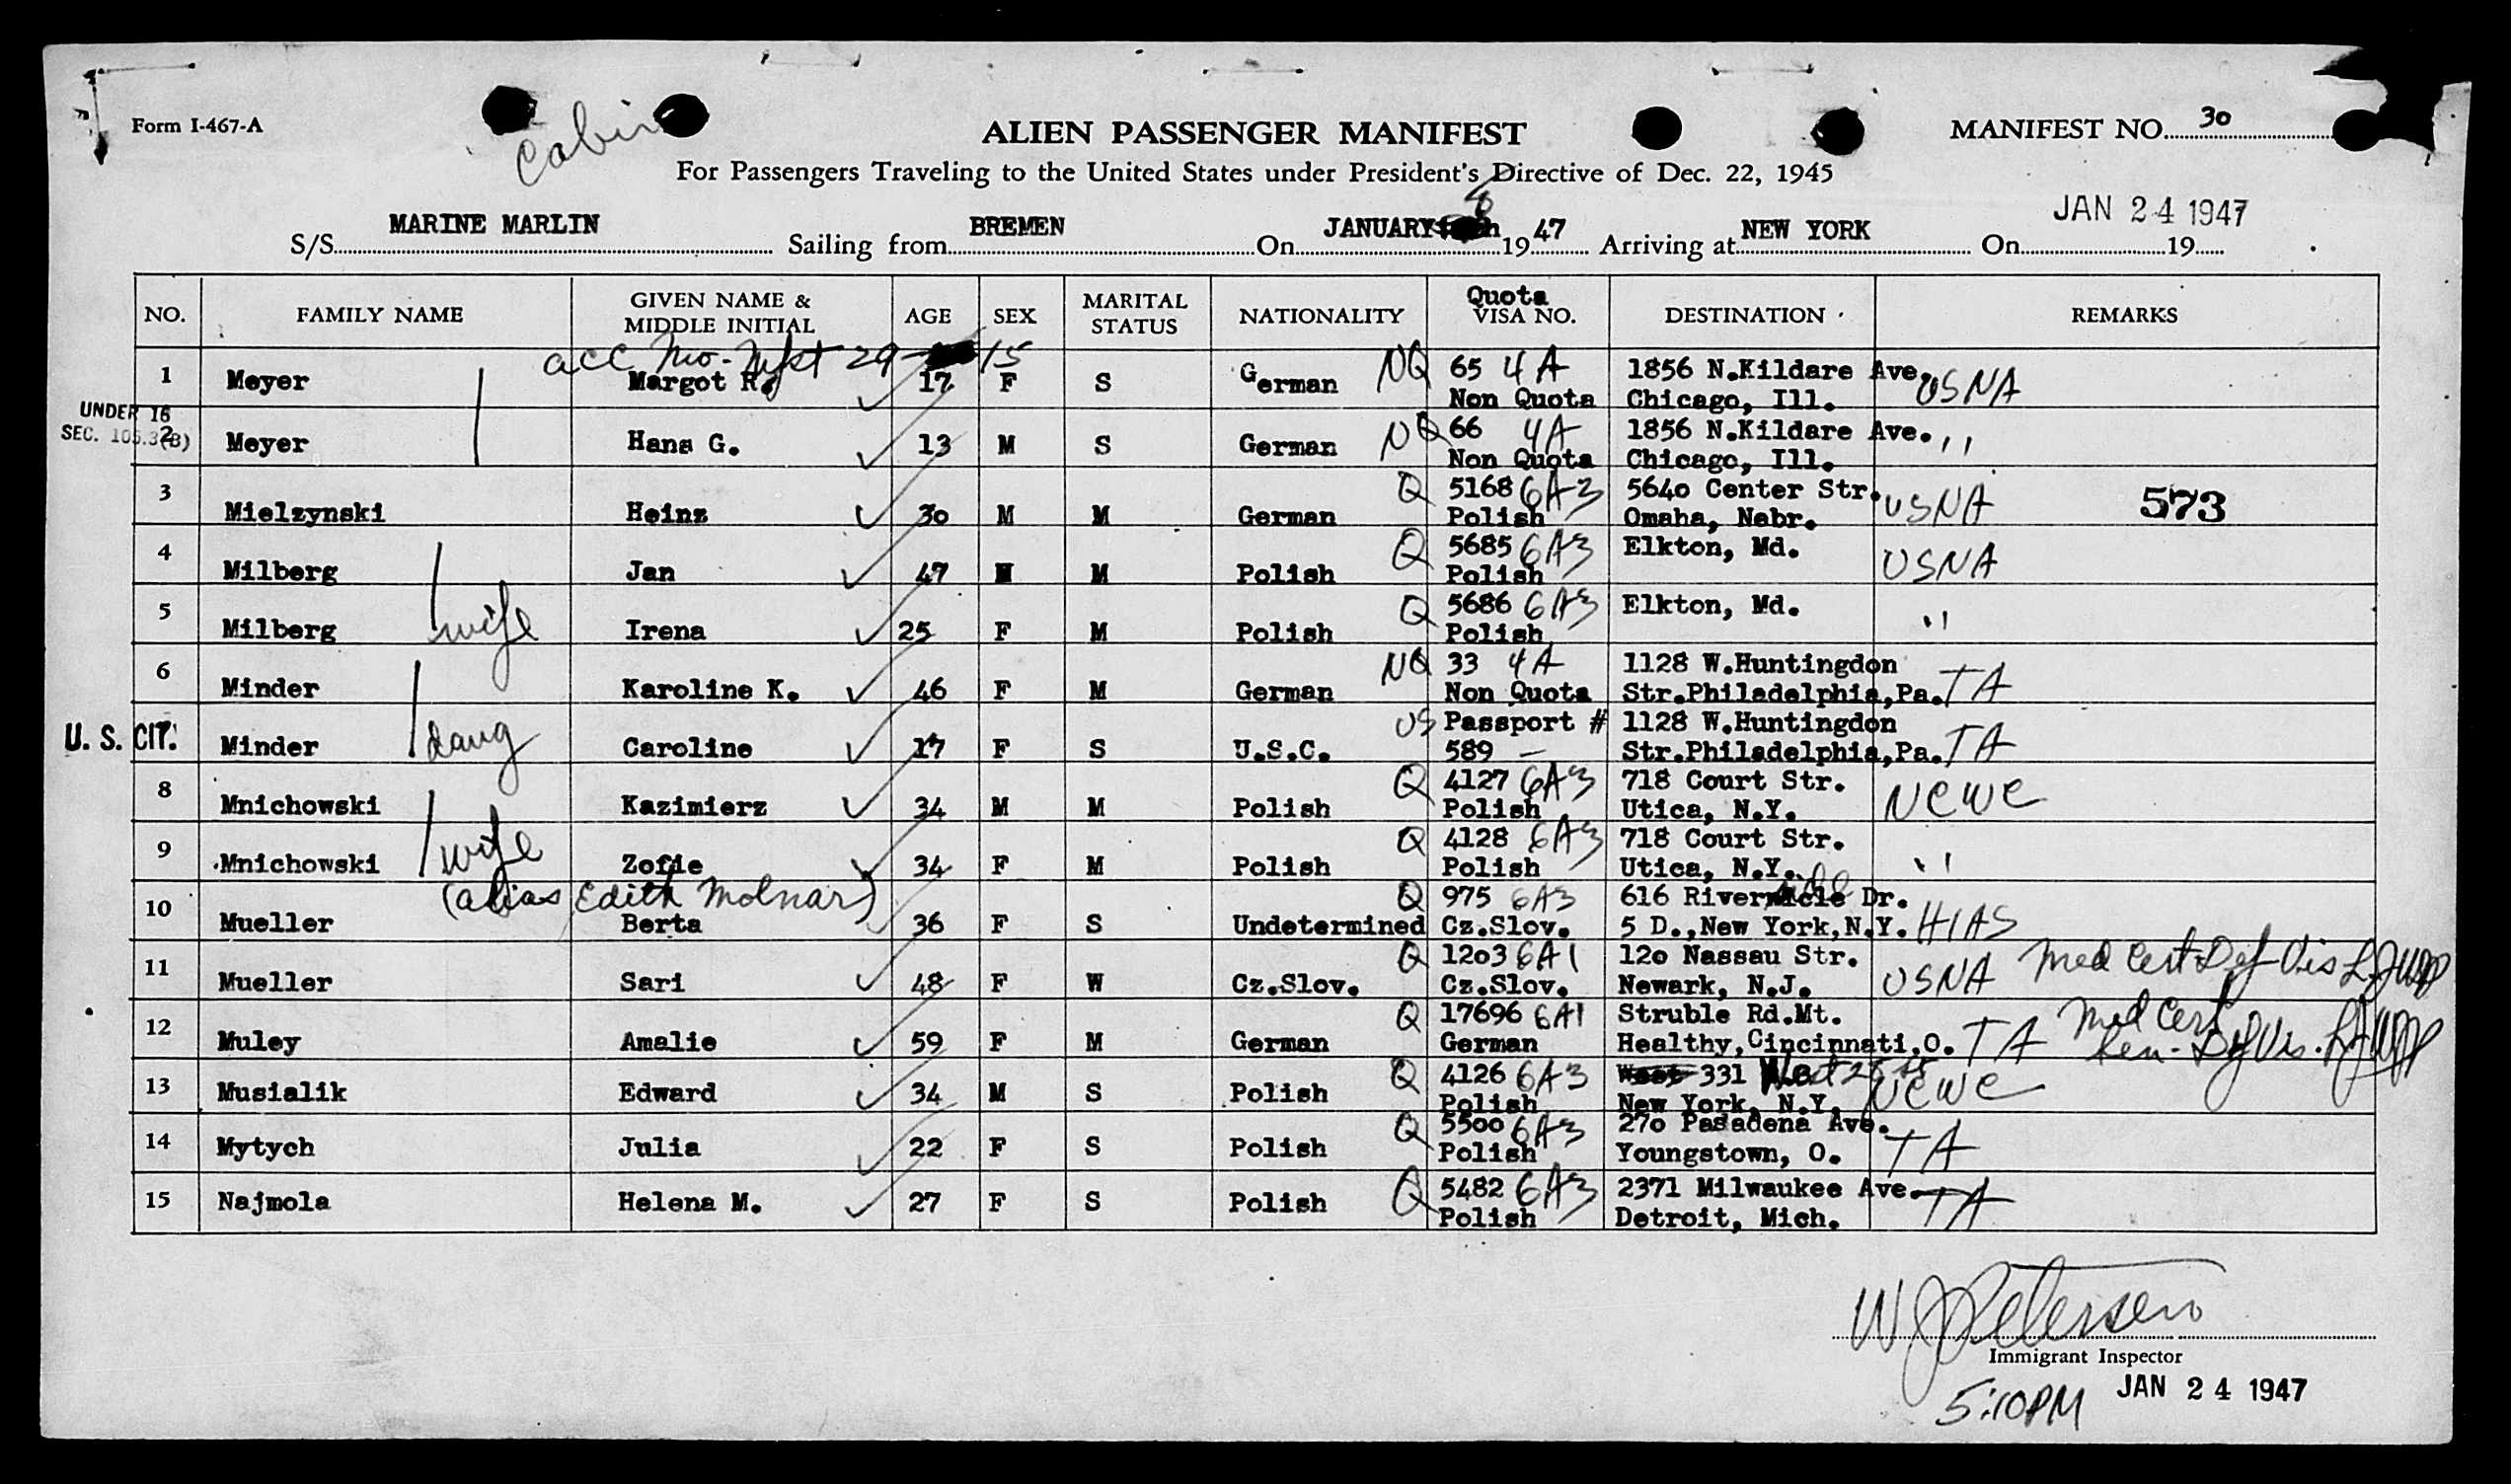 Form I-467-A
Cabin
ALIEN PASSENGER MANIFEST
MANIFEST NO. 30
For Passengers Traveling to the United States under President's Directive of Dec. 22, 1945
S/S MARINE MARLIN Sailing from BREMEN On JANUARY 8 1947 Arriving at NEW YORK On JAN 24 1947 19
NO. FAMILY NAME GIVEN NAME & MIDDLE INITIAL AGE SEX MARITAL STATUS NATIONALITY Quota VISA NO. DESTINATION REMARKS
acc Mo. Mfst 29-15
1 Meyer Margot R. 17 F S German NQ 65 4A 1856 N.Kildare Ave. USNA
Non Quota Chicago, Ill.
UNDER 16
SEC. 105.3(B)
2 Meyer Hans G. 13 M S German NQ 66 4A 1856 N.Kildare Ave. "
Non Quota Chicago, Ill.
3 Mielzynski Heinz 30 M M German Q 5168 6A3 5640 Center Str. USNA 573
Polish Omaha, Nebr.
4 Milberg Jan 47 M M Polish Q 5685 6A3 Elkton, Md. USNA
Polish
5 Milberg wife Irena 25 F M Polish Q 5686 6A3 Elkton, Md. "
Polish
6 Minder Karoline K. 46 F M German NQ 33 4A 1128 W.Huntingdon
Non Quota Str.Philadelphia,Pa. TA
U. S. CIT.
7 Minder daug Caroline 17 F S U.S.C. US Passport # 1128 W.Huntingdon
589 – Str.Philadelphia,Pa. TA
8 Mnichowski Kazimierz 34 M M Polish Q 4127 6A3 718 Court Str. NCWC
Polish Utica, N.Y.
9 Mnichowski wife Zofie 34 F M Polish Q 4128 6A3 718 Court Str. "
Polish Utica, N.Y.
(alias Edith Molnar)
10 Mueller Berta 36 F S Undetermined Q 975 6A3 616 Riverside Dr.
Cz.Slov. 5 D.,New York,N.Y. HIAS
11 Mueller Sari 48 F W Cz.Slov. Q 1203 6A1 120 Nassau Str. USNA Med Cert Def Vis
Cz.Slov. Newark, N.J.
12 Muley Amalie 59 F M German Q 17696 6A1 Struble Rd.Mt. Med Cert
German Healthy,Cincinnati,O. TA Sen. Def Vis.
13 Musialik Edward 34 M S Polish Q 4126 6A3 331 NCWC
Polish New York, N.Y.
14 Mytych Julia 22 F S Polish Q 5500 6A3 270 Pasadena Ave. TA
Polish Youngstown, O.
15 Najmola Helena M. 27 F S Polish Q 5482 6A3 2371 Milwaukee Ave. TA
Polish Detroit, Mich.
W J Petersen
Immigrant Inspector
5:10PM JAN 24 1947